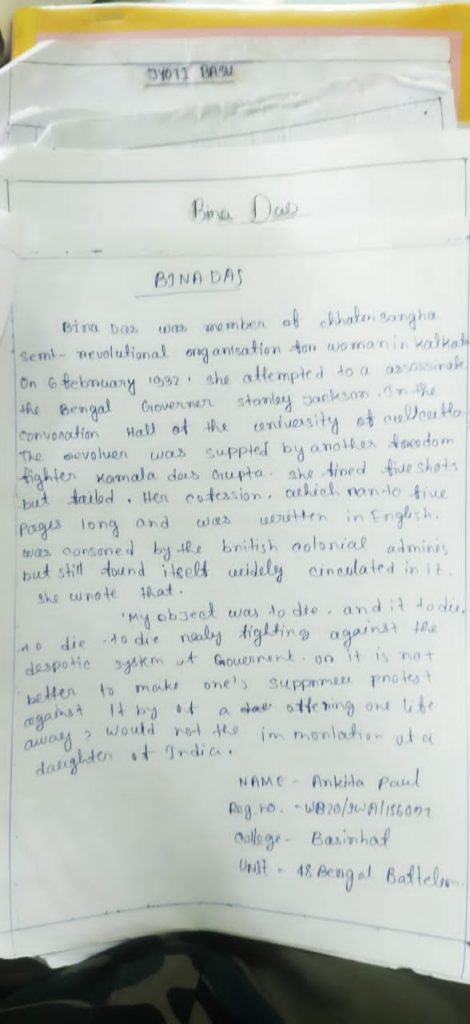 JYOTI BASU
Bina Das
BINA DAS
Bina Das was member of chhatrisangha
semi-revolutional organisation for woman in kalkat
On 6 february 1932. she attempted to a assassinate
the Bengal Governer stanley jackson. In the
convocation Hall of the university of calcutta
The revolver was suppted by another freedom
fighter Kamala das Gupta. she fired five shots
but failed. Her cofession. which ran to five
Pages long and was written in English.
was consored by the british colonial adminis
but still found itself widely circulated in it.
she wrote that.
'My object was to die. and if to die.
to die. to die nealy fighting against the
despotic system of Government. or it is not
better to make one's suppremee protest
against It by of a offering one life
away? would not the immorlation of a
daughter of India.
NAME - Ankita Paul
Reg. no. - WB20/SWA/
college - Basirhat
UNIT - 48 Bengal Battelion.